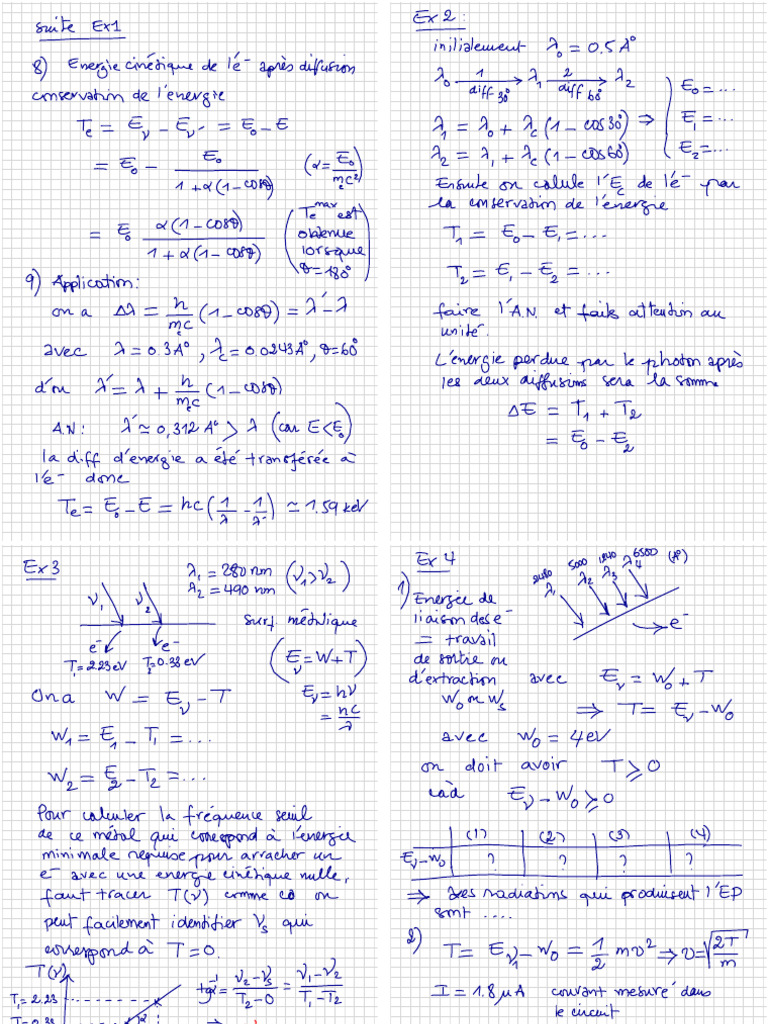 suite Ex1
8) Energie cinétique de l'é⁻ après difusion
conservation de l'énergie
Te = Eν - Eν' = E₀ - E
= E₀ - E₀ / (1 + α(1 - cosθ)) (α = E₀ / mₑc²)
= E₀ α(1 - cosθ) / (1 + α(1 - cosθ)) (Te^max est
obtenue
lorsque
θ = 180°)
9) Application:
on a Δλ = h / mₑc (1 - cosθ) = λ' - λ
avec λ = 0.3A°, λc = 0.0243A°, θ = 60°
d'où λ' = λ + h / mₑc (1 - cosθ)
A.N: λ' ≃ 0,312A° > λ (car E < E₀)
la diff d'énergie a été transférée à
l'é⁻ donc
Te = E₀ - E = hc(1/λ - 1/λ') ≃ 1.59 keV
Ex 2:
initialement λ₀ = 0.5A°
λ₀ —1 diff 30°→ λ₁ —2 diff 60°→ λ₂
λ₁ = λ₀ + λc(1 - cos30°) ⇒ E₀ = ...
λ₂ = λ₁ + λc(1 - cos60°) E₁ = ...
E₂ = ...
Ensuite on calule l'Ec de l'é⁻ par
la conservation de l'énergie
T₁ = E₀ - E₁ = ...
T₂ = E₁ - E₂ = ...
faire l'A.N. et faits attention au
unité.
L'énergie perdue par le photon après
les deux diffusions sera la somme
ΔE = T₁ + T₂
= E₀ - E₂
Ex3
λ₁ = 280 nm (ν₁ > ν₂)
λ₂ = 490 nm
ν₁ ν₂
surf. métallique
e⁻ e⁻
T₁ = 2.23 eV T₂ = 0.38 eV
(Eν = W + T)
On a W = Eν - T
Eν = hν
= hc / λ
W₁ = E₁ - T₁ = ...
W₂ = E₂ - T₂ = ...
Pour calculer la fréquence seuil
de ce métal qui correspond à l'énergie
minimale requise pour arracher un
e⁻ avec une énergie cinétique nulle,
faut tracer T(ν) comme ça on
peut facilement identifier νs qui
correspond à T = 0.
T(ν)
tg⁻¹ = (ν₂ - νs) / (T₂ - 0) = (ν₁ - ν₂) / (T₁ - T₂)
T₁ = 2.23
Ex 4
5000 6500 (A°)
λ₁ λ₂ λ₃ λ₄
e⁻
1) Energie de
liaison des e⁻
= travail
de sortie ou
d'extraction
W₀ ou Ws
avec Eν = W₀ + T
⇒ T = Eν - W₀
avec W₀ = 4eV
on doit avoir T ⩾ 0
càd Eν - W₀ ⩾ 0
(1) (2) (3) (4)
Eν - W₀ ? ? ? ?
⇒ les radiations qui produisent l'EP
sont ....
2) T = Eν₁ - W₀ = 1/2 mv² ⇒ v = √(2T/m)
I = 1.8μA courant mesuré dans
le circuit